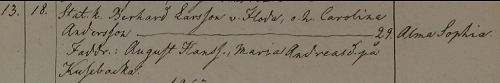 13. 18. Stat.k. Bernhard Larsson v. Floda, o. h. Carolina
Andersson 29. Alma Sophia.
Faddr.: August Hanss., Maria Andreasd. på
Kusebacka.